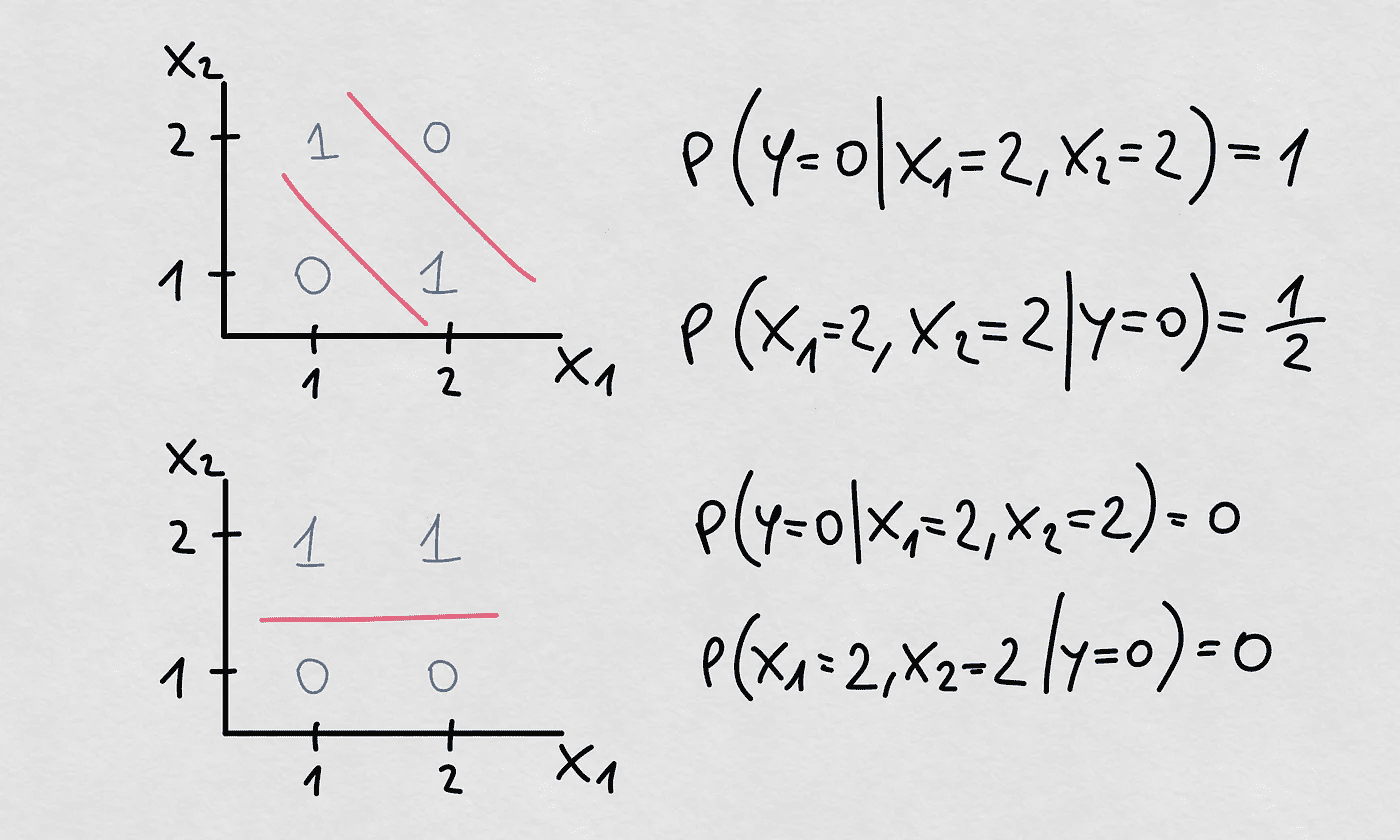 X₂
2 1 0
1 0 1
1 2 X₁
P(Y=0|X₁=2, X₂=2)=1
P(X₁=2, X₂=2|Y=0)=1/2
X₂
2 1 1
1 0 0
1 2 X₁
P(Y=0|X₁=2, X₂=2)=0
P(X₁=2, X₂=2|Y=0)=0